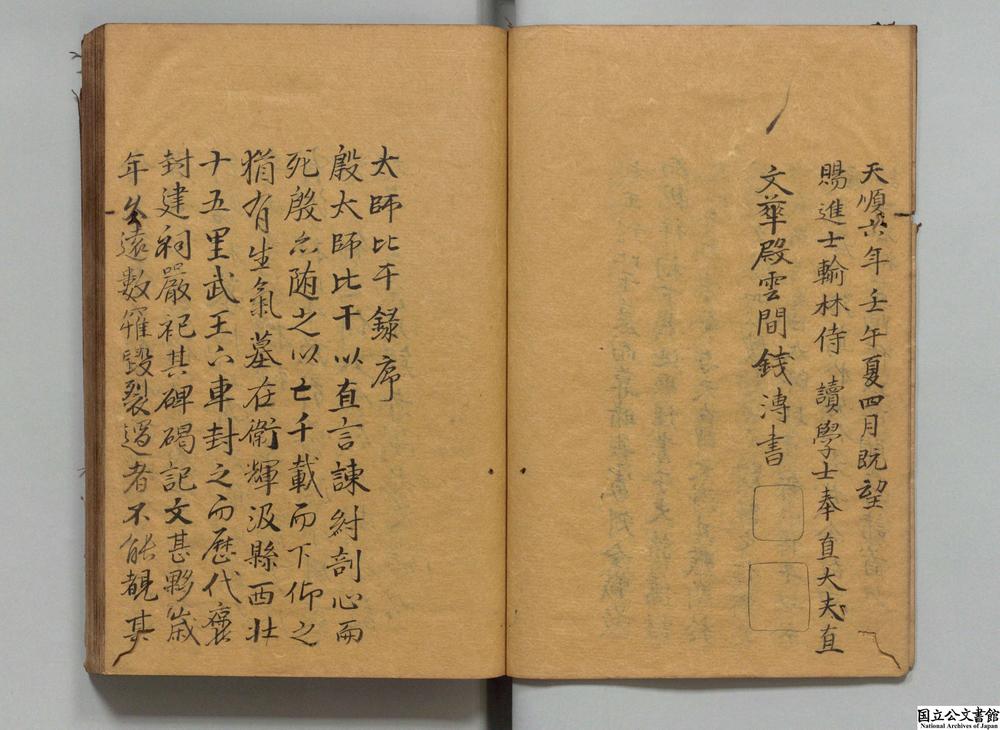 天順六年壬午夏四月既望
賜進士翰林侍讀學士奉直大夫直
文華殿雲間錢溥書
太師比干錄序
殷太師比干以直言諫紂剖心而
死殷亦随之以亡千載而下仰之
猶有生氣墓在衛輝汲縣西北
十五里武王六車封之而歷代褒
封建祠嚴祀其碑碣記文甚夥歲
年久遠數罹毀裂過者不能覩其
国立公文書館
National Archives of Japan